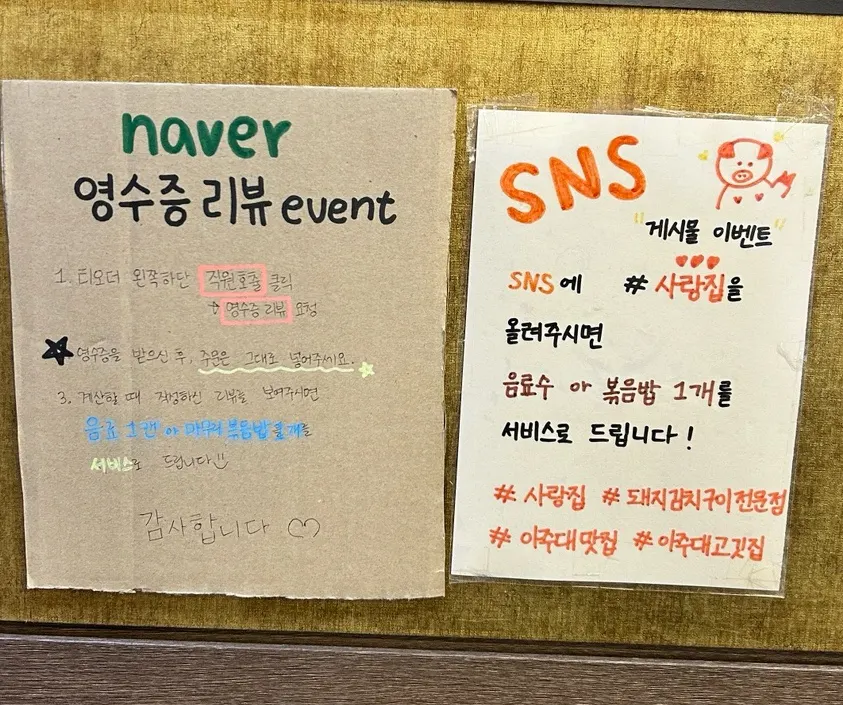 naver
영수증 리뷰 event
1. 티오더 왼쪽하단 직원호출 클릭
영수증 리뷰 요청
영수증을 받으신 후, 주문은 그대로 넣어주세요.
3. 계산할 때 작성하신 리뷰를 보여주시면
음료 1캔 or 마무리 볶음밥 1개를
서비스로 드립니다
감사합니다
SNS
"게시물 이벤트"
SNS에 #사랑집을
올려주시면
음료수 or 볶음밥 1개를
서비스로 드립니다!
#사랑집 #돼지김치구이전문점
#아주대맛집 #아주대고깃집